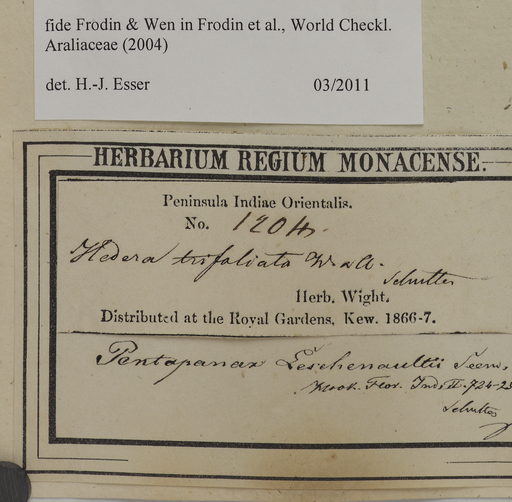 fide Frodin & Wen in Frodin et al., World Checkl.
Araliaceae (2004)
det. H.-J. Esser 03/2011
HERBARIUM REGIUM MONACENSE.
Peninsula Indiae Orientalis.
No. 1204.
Hedera trifoliata W. & A.
Herb. Wight.
Distributed at the Royal Gardens, Kew. 1866-7.
Pentapanax Leschenaultii Seem.
Hook. Flor. Ind. II. 724-25